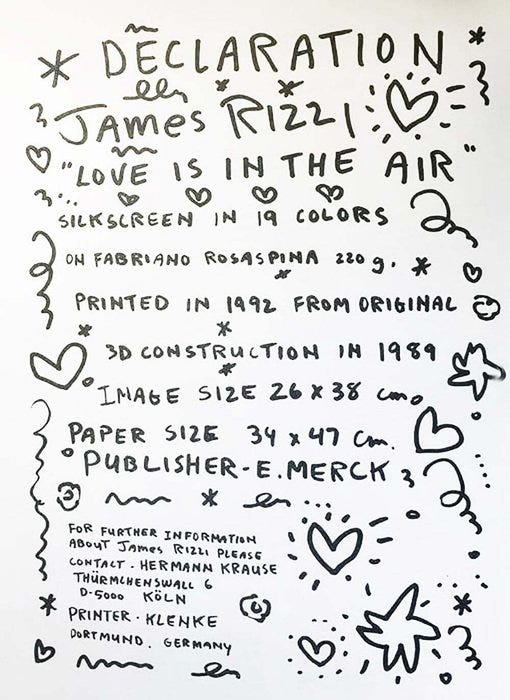 DECLARATION
James Rizzi
"LOVE IS IN THE AIR"
SILKSCREEN IN 19 COLORS
ON FABRIANO ROSASPINA 220 g.
PRINTED IN 1992 FROM ORIGINAL
3D CONSTRUCTION IN 1989
IMAGE SIZE 26 x 38 cm.
PAPER SIZE 34 x 47 cm.
PUBLISHER - E. MERCK
FOR FURTHER INFORMATION
ABOUT James Rizzi PLEASE
CONTACT - HERMANN KRAUSE
THÜRMCHENSWALL 6
D-5000 KÖLN
PRINTER - KLENKE
DORTMUND. GERMANY